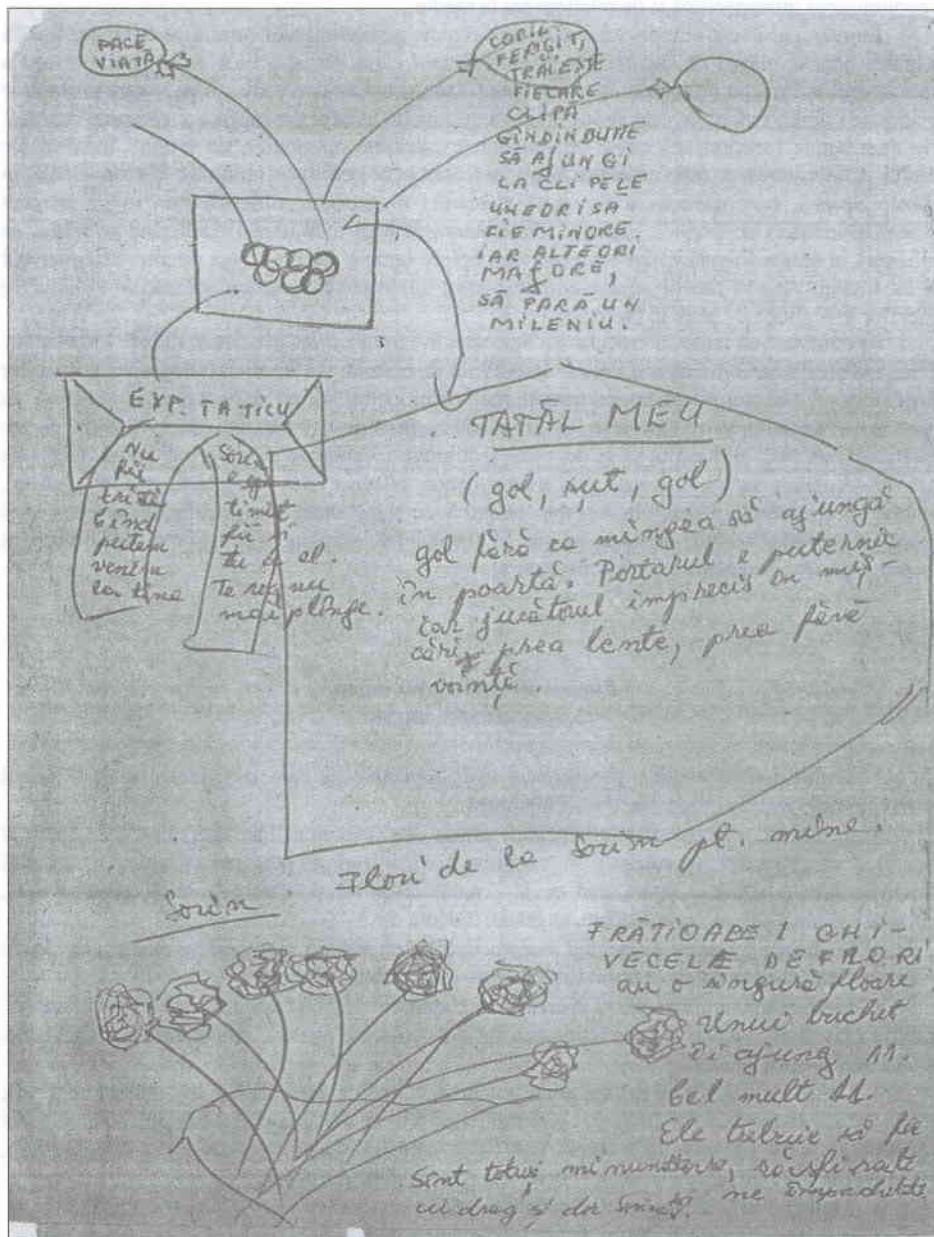 PACE
VIAȚĂ
COPIL
FERICIT,
TRĂIEȘTE
FIECARE
CLIPĂ
GÎNDINDU-TE
SĂ AJUNGI
LA CLIPELE
UNEORI SĂ
FIE MINORE.
IAR ALTEORI
MAJORE,
SĂ PARĂ UN
MILENIU.
EXP. TATICU
Nu
fii
tristă
cînd
putem
venim
la tine
Sorin
e
timid,
fii și
tu ca el.
Te rog nu
mai plânge.
TATĂL MEU
(gol, șut, gol)
gol fără ca mingea să ajungă
în poartă. Portarul e puternic
iar jucătorul imprecis în miș-
cări, prea lente, prea fără
voință.
Flori de la Sorin pt. mine.
Sorin
FRĂȚIOARE! GHI-
VECELE DE FLORI
au o singură floare
Unui buchet
îi ajung 11.
Cel mult 11.
Ele trebuie să fie
sînt totuși minunate, răsfirate
cu drag și dor ne împachetate